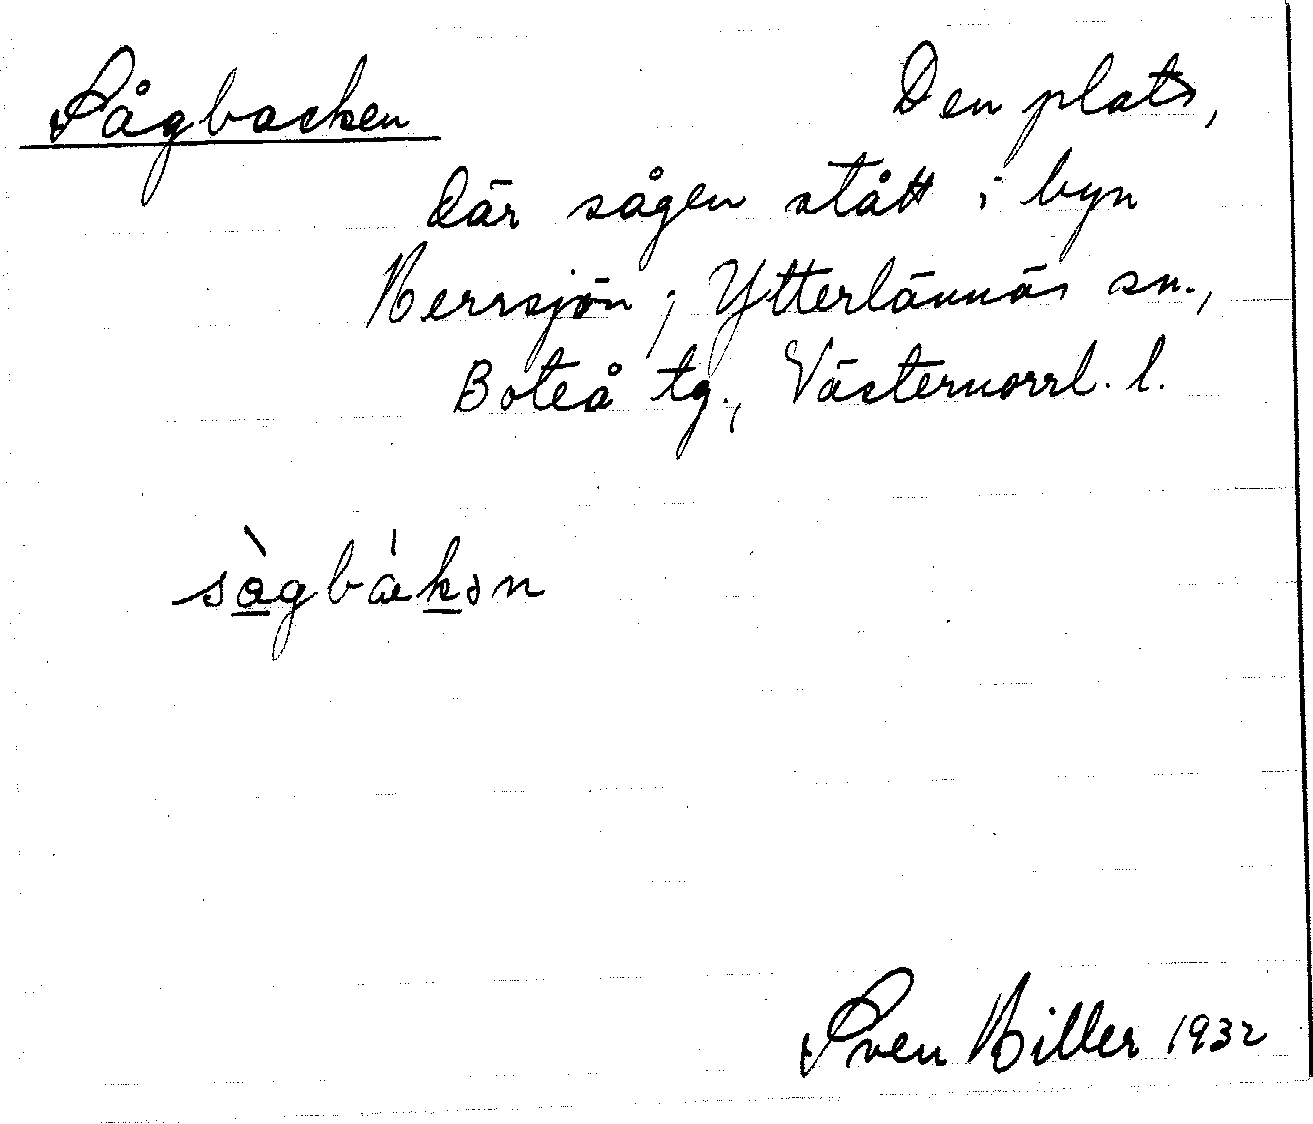 Sågbacken Den plats,
där sågen stått i byn
Herrsjön, Ytterlännäs sn.,
Boteå tg., Västernorrl. l.
sògbákən
Sven Hiller 1932